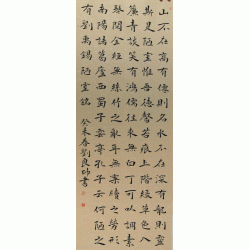 山不在高有僊則名水不在深有龍則靈
斯是陋室惟吾德馨苔痕上階綠草色入
簾青談笑有鴻儒往來無白丁可以調素
琴閱金經無絲竹之亂耳無案牘之勞形
南陽諸葛廬西蜀子雲亭孔子云何陋之
有劉禹錫陋室銘 癸未春劉良師書